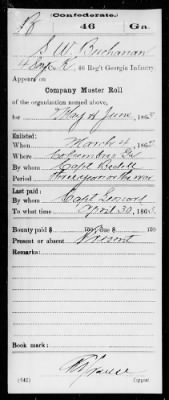 (Confederate.)
B 46 Ga.
S. W. Buchanan
Co. K, 46 Reg't Georgia Infantry
Appears on
Company Muster Roll
of the organization named above,
for May & June, 1863
Enlisted:
When March 4, 1862
Where Columbus Ga
By whom Capt
Period 3 years or the war
Last paid:
By whom Capt
To what time April 30, 1863
Bounty paid $ 100; due $ 100
Present or absent Present
Remarks:
Book mark:
(642) Copyist.